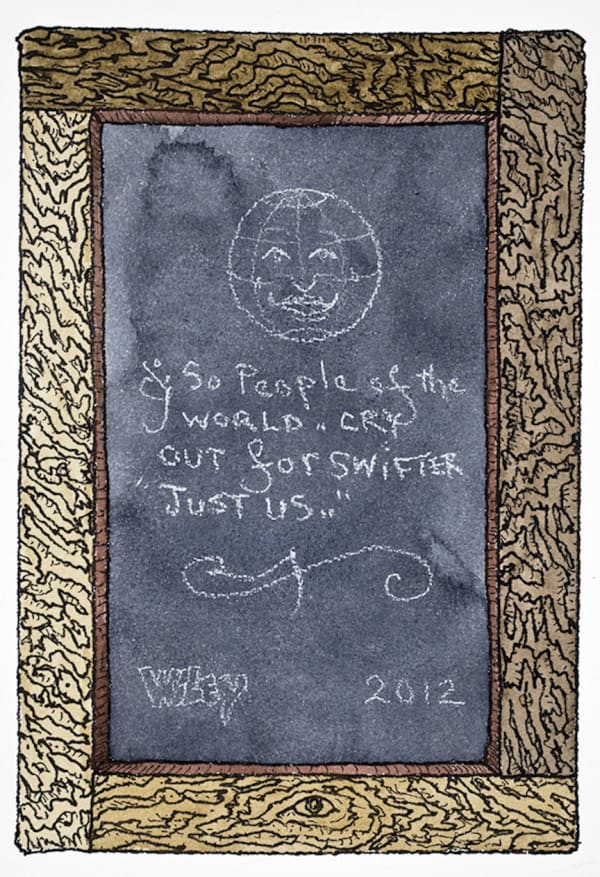 & So People of the
WORLD.. CRY
OUT for SWIFTER
"JUST US.."
Wiley
2012